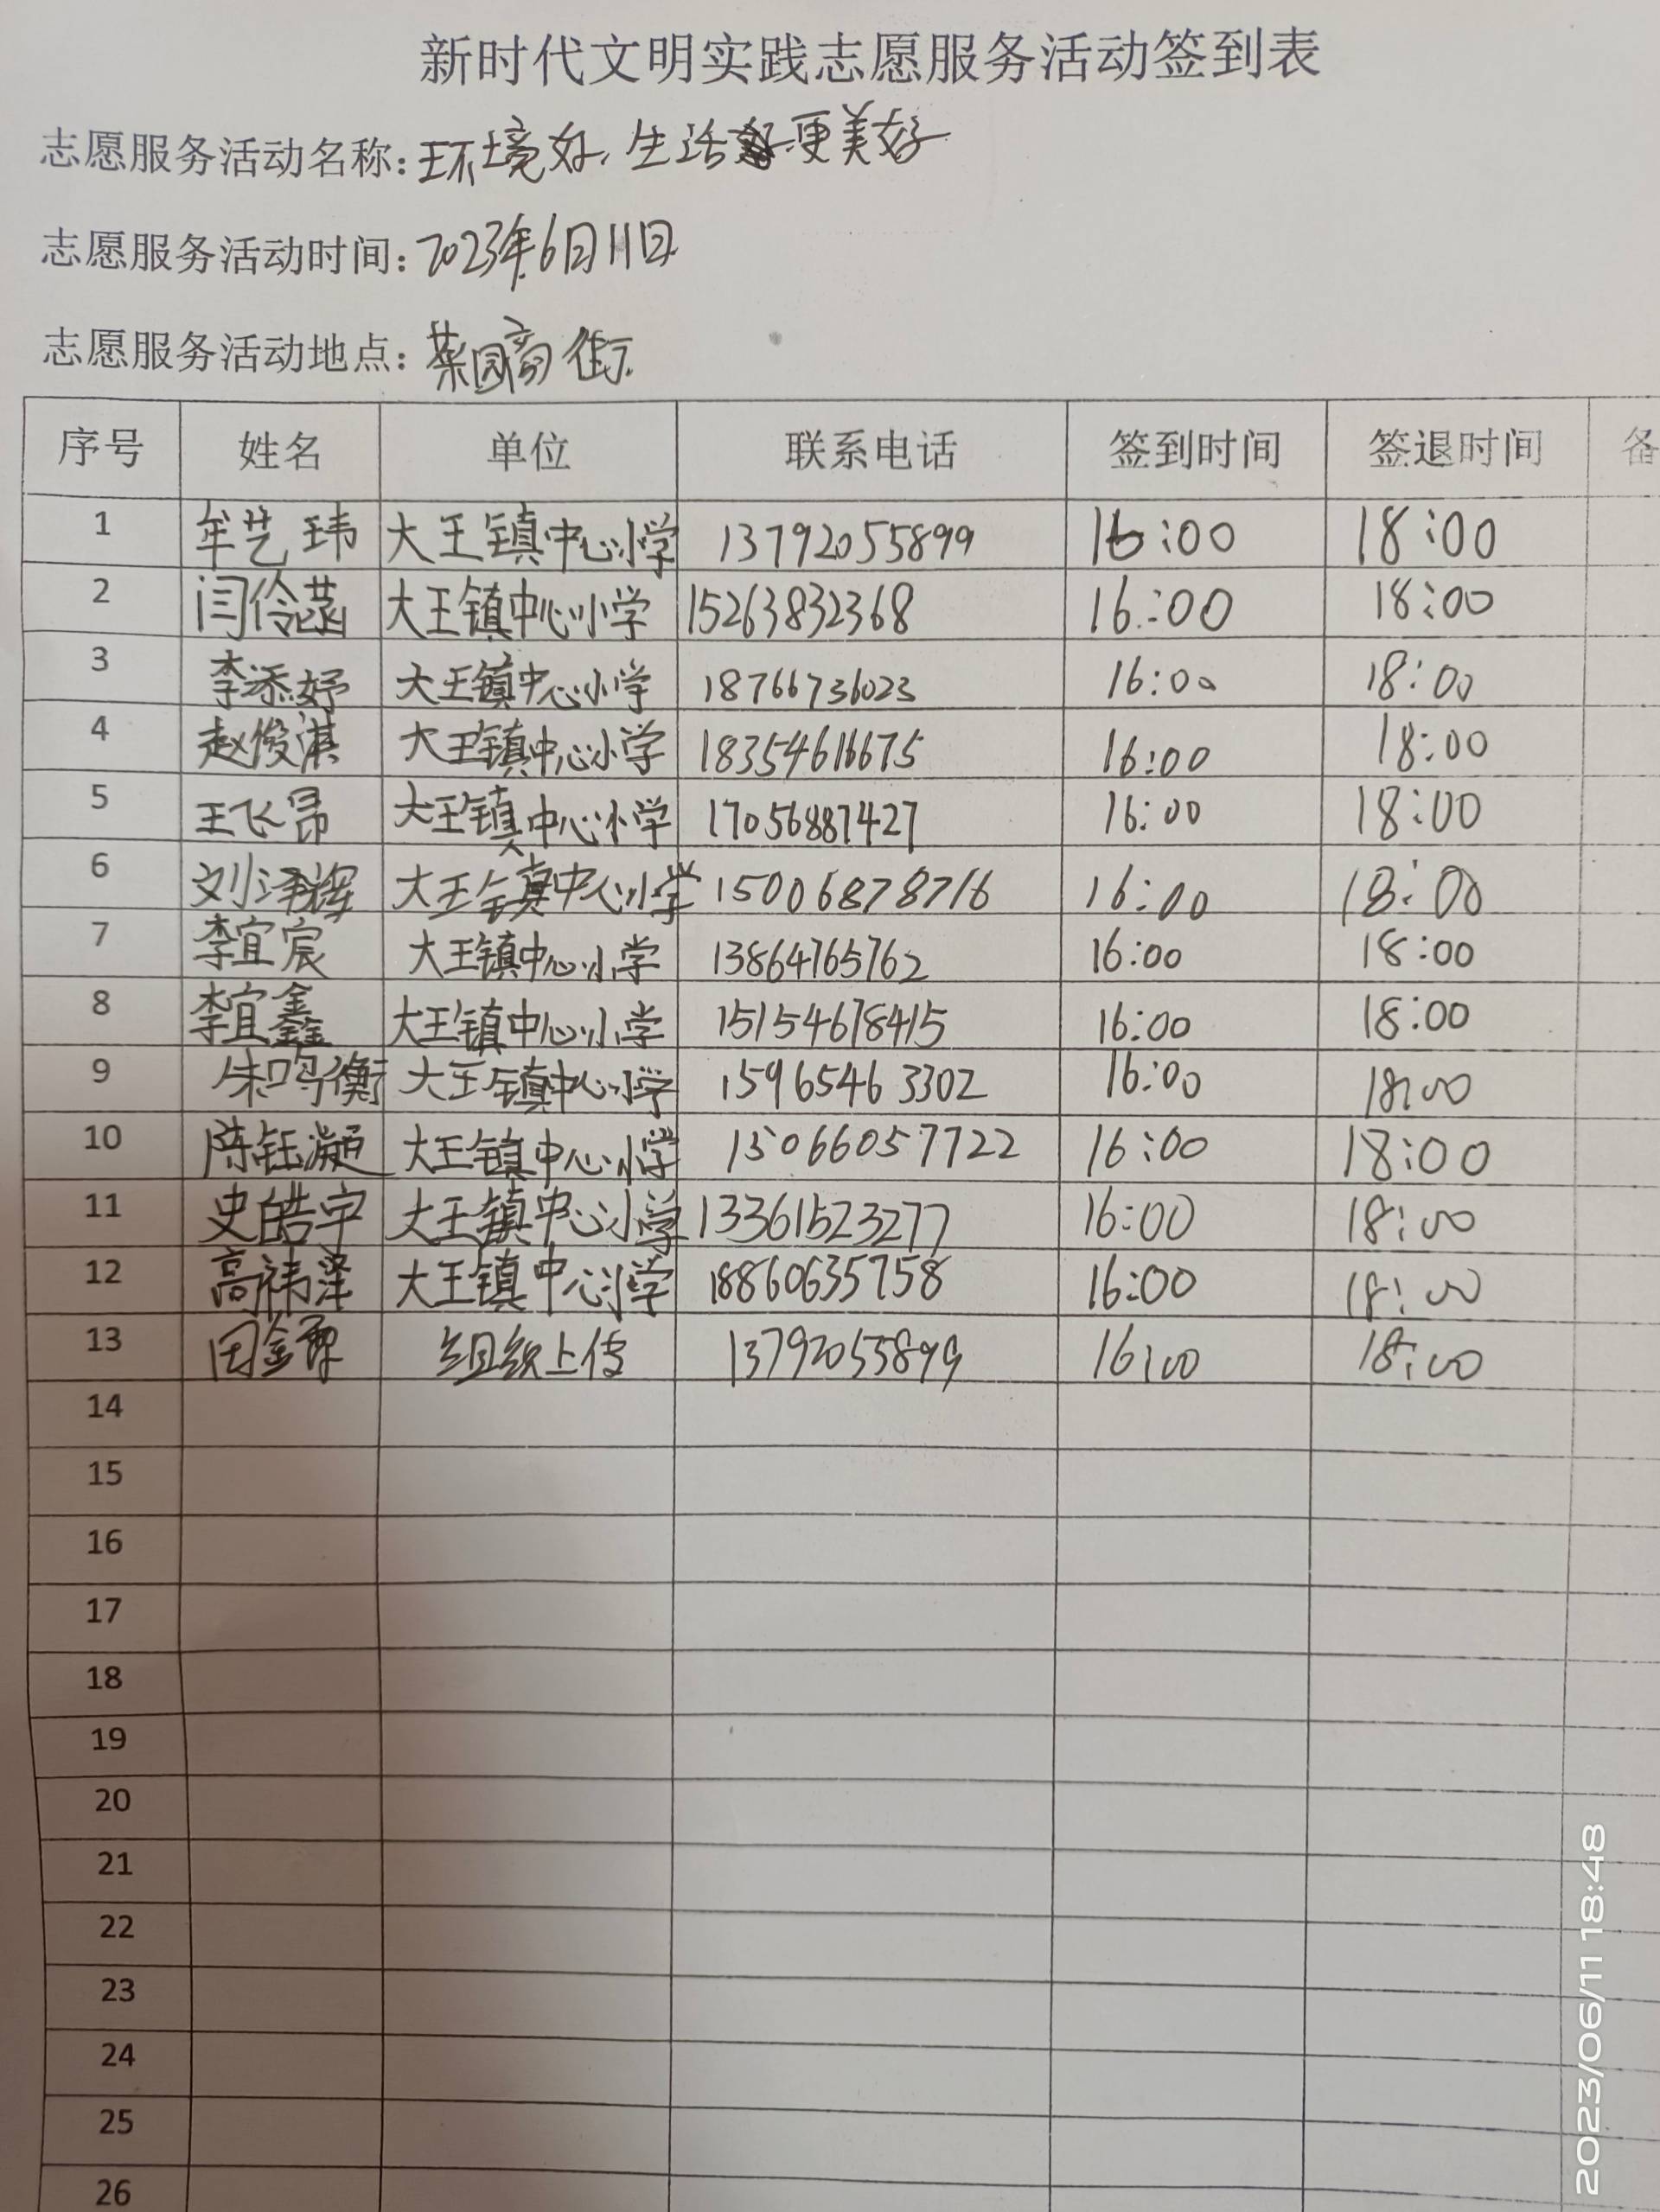 新时代文明实践志愿服务活动签到表
志愿服务活动名称：环境好，生活更美好
志愿服务活动时间：2023年6月11日
志愿服务活动地点：菜园商街
序号 姓名 单位 联系电话 签到时间 签退时间 备
1 牟艺玮 大王镇中心小学 13792055899 16:00 18:00
2 闫伶菡 大王镇中心小学 15263832368 16:00 18:00
3 李添妤 大王镇中心小学 18766736023 16:00 18:00
4 赵俊淇 大王镇中心小学 18354616675 16:00 18:00
5 王飞昂 大王镇中心小学 17056887427 16:00 18:00
6 刘泽辉 大王镇中心小学 15006878716 16:00 18:00
7 李宜宸 大王镇中心小学 13864765762 16:00 18:00
8 李宜鑫 大王镇中心小学 15154678415 16:00 18:00
9 朱鸣衡 大王镇中心小学 15965463302 16:00 18:00
10 陈钰灏 大王镇中心小学 15066057722 16:00 18:00
11 史皓宇 大王镇中心小学 13361523277 16:00 18:00
12 高祎泽 大王镇中心小学 18860635758 16:00 18:00
13 组织上传 13792055899 16:00 18:00
14
15
16
17
18
19
20
21
22
23
24
25
26
2023/06/11 18:48